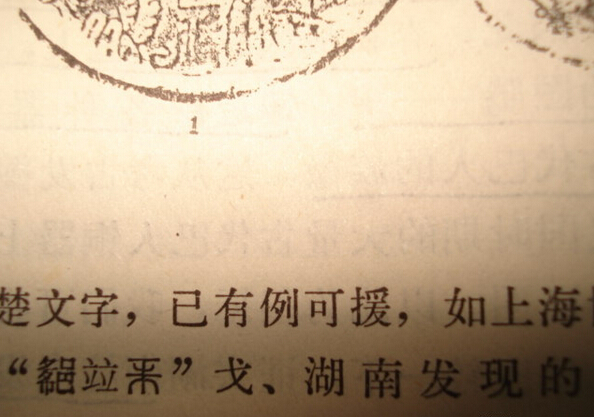 1
楚文字，已有例可援，如上海
“ 竝 ”戈、湖南发现的